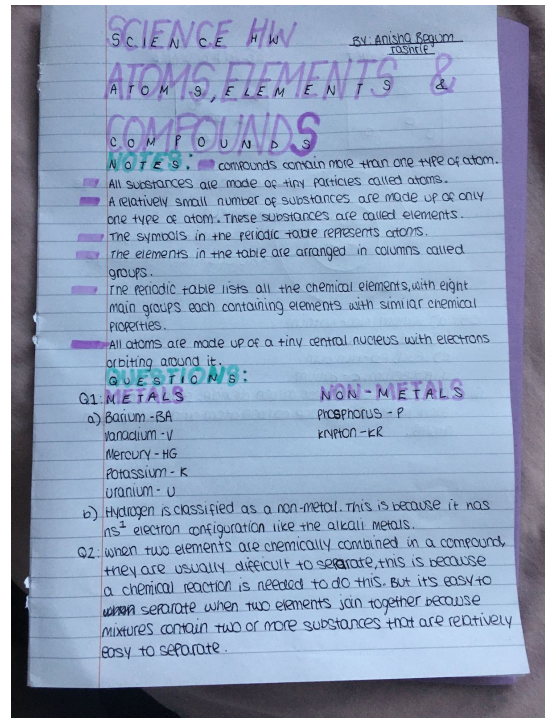 SCIENCE HW
BY: Anisha Begum
ATOMS, ELEMENTS &
COMPOUNDS
NOTES: compounds contain more than one type of atom.
All substances are made of tiny particles called atoms.
A relatively small number of substances are made up of only
one type of atom. These substances are called elements.
The symbols in the periodic table represents atoms.
The elements in the table are arranged in columns called
groups.
The periodic table lists all the chemical elements, with eight
main groups each containing elements with similar chemical
properties.
All atoms are made up of a tiny central nucleus with electrons
orbiting around it.
QUESTIONS:
Q1: METALS NON-METALS
a) Barium - BA Phosphorus - P
Vanadium - V Krypton - KR
Mercury - HG
Potassium - K
Uranium - U
b) Hydrogen is classified as a non-metal. This is because it has
ns¹ electron configuration like the alkali metals.
Q2: when two elements are chemically combined in a compound,
they are usually difficult to separate, this is because
a chemical reaction is needed to do this. But it's easy to
separate when two elements join together because
mixtures contain two or more substances that are relatively
easy to separate.